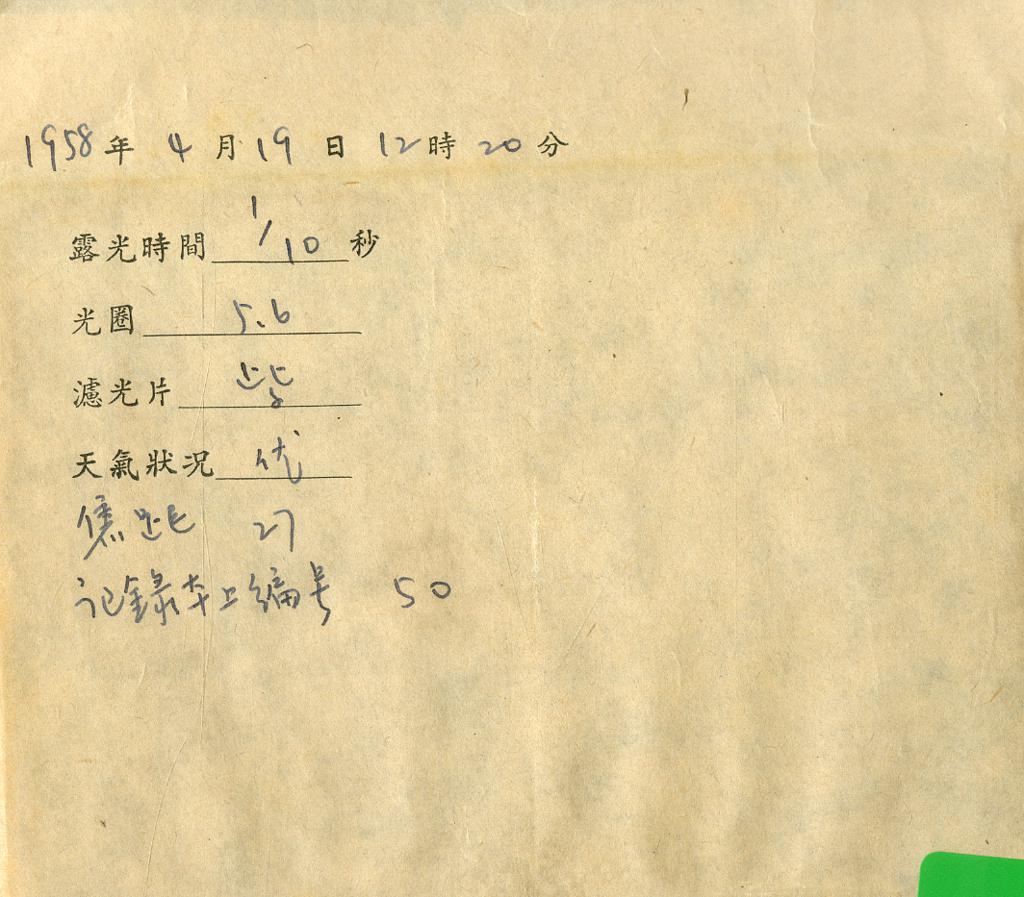 1958年 4月19日12時20分
露光時間 1/10 秒
光圈 5.6
濾光片
天氣狀况 优
焦距 27
记錄本上编号 50